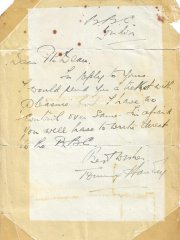 BBC
London
Dear Mr Dean,
In reply to Yours
I would send you a ticket with
Pleasure but I have no
Control over same Im afraid
you will have to write direct
to the BBC
Best Wishes